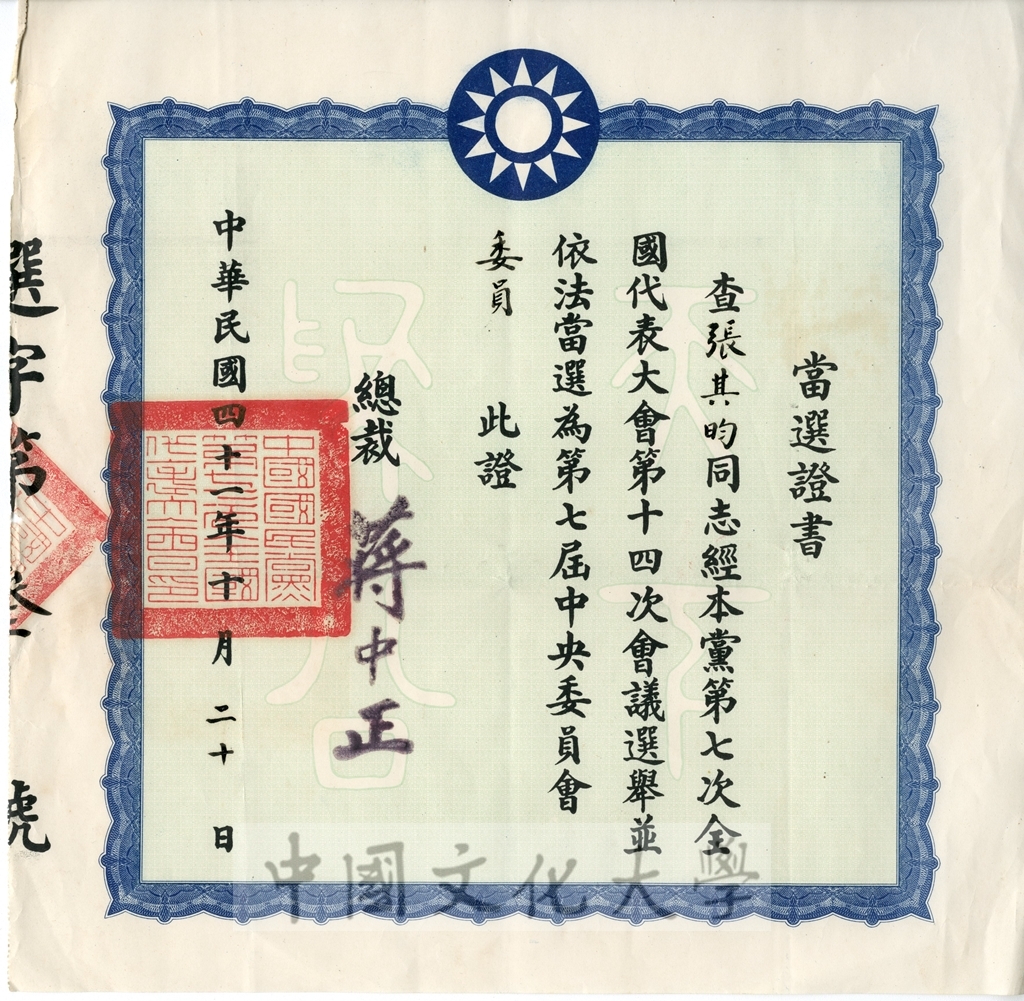 當選證書
查張其昀同志經本黨第七次全
國代表大會第十四次會議選舉並
依法當選為第七屆中央委員會
委員　此證
總裁　蔣中正
中華民國四十一年十月二十日
中國國民黨
第七次全國
代表大會印
選字第　號
天下為公
中國文化大學